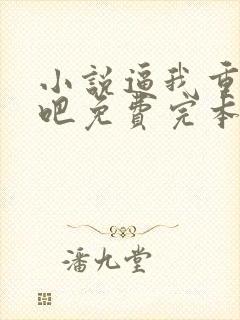 小説逼我重
吧免費完本
潘九堂